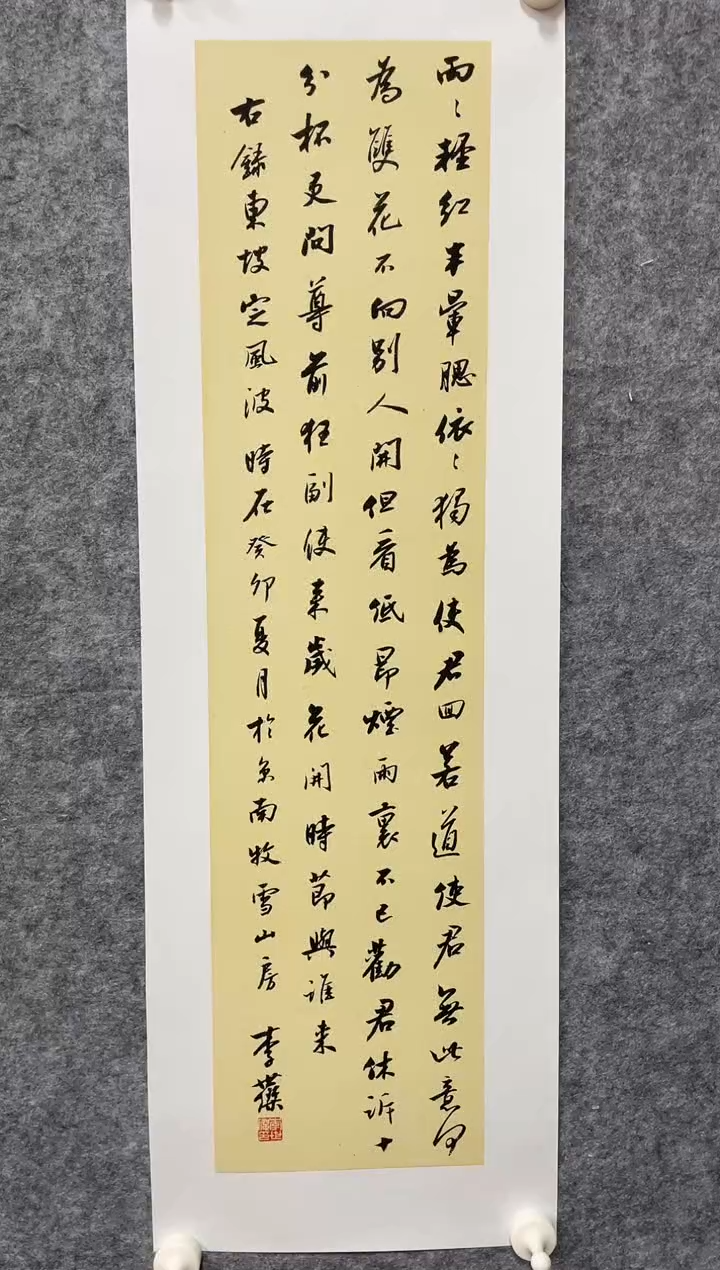 兩〻輕紅半暈腮依〻獨為使君回若道使君無此意何
為雙花不向別人開但看低昂煙雨裏不已勸君休訴十
分杯更問尊前狂副使来歲花開時節與誰来
右錄東坡定風波時在癸卯夏月於京南牧雪山房 李